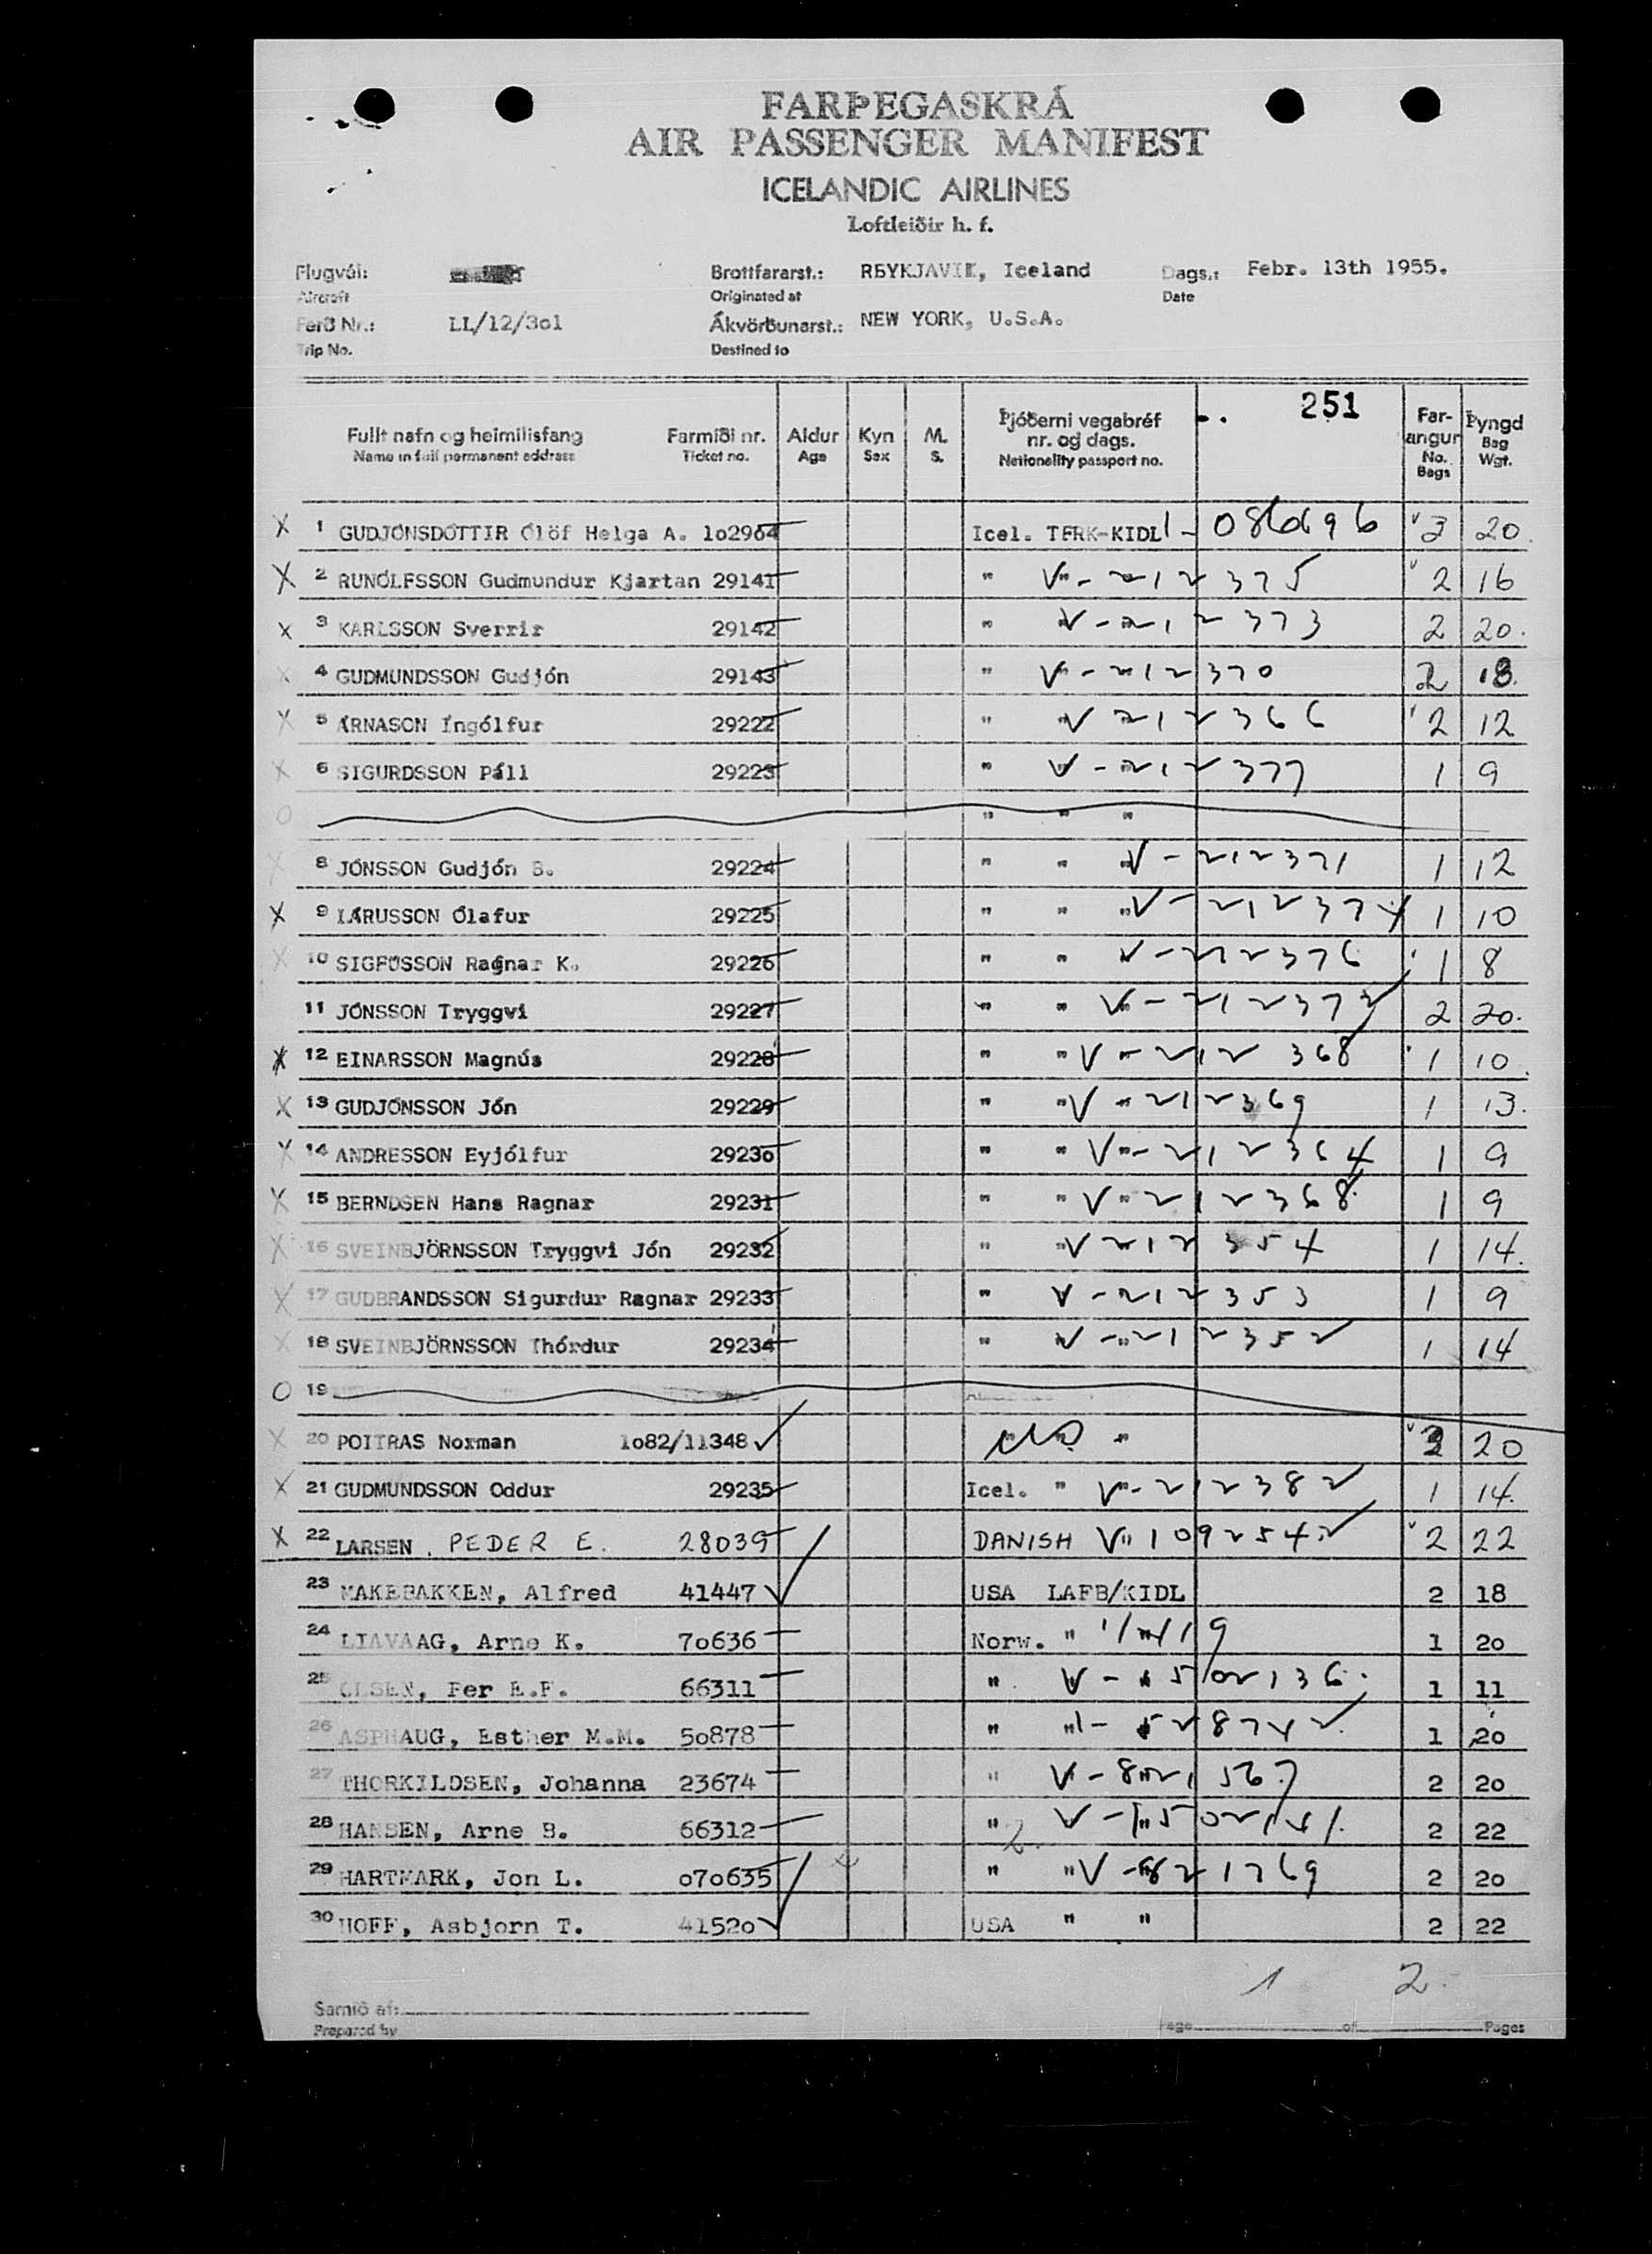 FARÞEGASKRÁ
AIR PASSENGER MANIFEST
ICELANDIC AIRLINES
Loftleiðir h. f.
Flugvél: Brottfararst.: REYKJAVIK, Iceland Dags.: Febr. 13th 1955.
Aircraft Originated at Date
Ferð Nr.: LL/12/3o1 Ákvörðunarst.: NEW YORK, U.S.A.
Trip No. Destined to
251
Fullt nafn og heimilisfang Farmiði nr. Aldur Kyn M. Þjóðerni vegabréf nr. og dags. Far-angur Þyngd
Name in full permanent address Ticket no. Age Sex S. Nationality passport no. No. Bags Bag Wgt.
X 1 GUDJÓNSDÓTTIR Ólöf Helga A. 1o2964 Icel. TFRK-KIDL 3 20
X 2 RUNÓLFSSON Gudmundur Kjartan 29141 " V-212375 2 16
X 3 KARLSSON Sverrir 29142 " V-212373 2 20.
X 4 GUDMUNDSSON Gudjón 29143 " V-212370 2 18.
X 5 ÁRNASON Íngólfur 29222 " V 212366 2 12
X 6 SIGURDSSON Páll 29223 " V-212377 1 9
O " " "
X 8 JÓNSSON Gudjón B. 29224 " " V-212371 1 12
X 9 LÁRUSSON Ólafur 29225 " " V-212374 1 10
X 10 SIGFÚSSON Ragnar K. 29226 " " V-212376 1 8
11 JÓNSSON Tryggvi 29227 " " V-212372 2 20.
X 12 EINARSSON Magnús 29228 " " V-212368 1 10.
X 13 GUDJÓNSSON Jón 29229 " " V-212369 1 13.
X 14 ANDRESSON Eyjólfur 2923o " " V-212364 1 9
X 15 BERNDSEN Hans Ragnar 29231 " " V-212368 1 9
X 16 SVEINBJÖRNSSON Tryggvi Jón 29232 " V 212354 1 14.
X 17 GUDBRANDSSON Sigurdur Ragnar 29233 " V-212353 1 9
X 18 SVEINBJÖRNSSON Thórdur 29234 " V-212352 1 14
O 19
X 20 POITRAS Norman 1o82/11348 " 20
X 21 GUDMUNDSSON Oddur 29235 Icel. " V-212382 1 14.
X 22 LARSEN, PEDER E. 28039 DANISH V 1092542 2 22
23 MAKEBAKKEN, Alfred 41447 USA LAFB/KIDL 2 18
24 LIAVAAG, Arne K. 7o636 Norw. " 1 2o
25 OLSEN, Per E.F. 66311 " V-1502136. 1 11
26 ASPHAUG, Esther M.M. 5o878 " 1 2o
27 THORKILDSEN, Johanna 23674 " V-821567 2 2o
28 HANSEN, Arne B. 66312 " V-1502141. 2 22
29 HARTMARK, Jon L. o7o635 " "V-821769 2 2o
30 HOFF, Asbjorn T. 4152o USA " " 2 22
Samið af:
Prepared by
Page 1 of 2 Pages